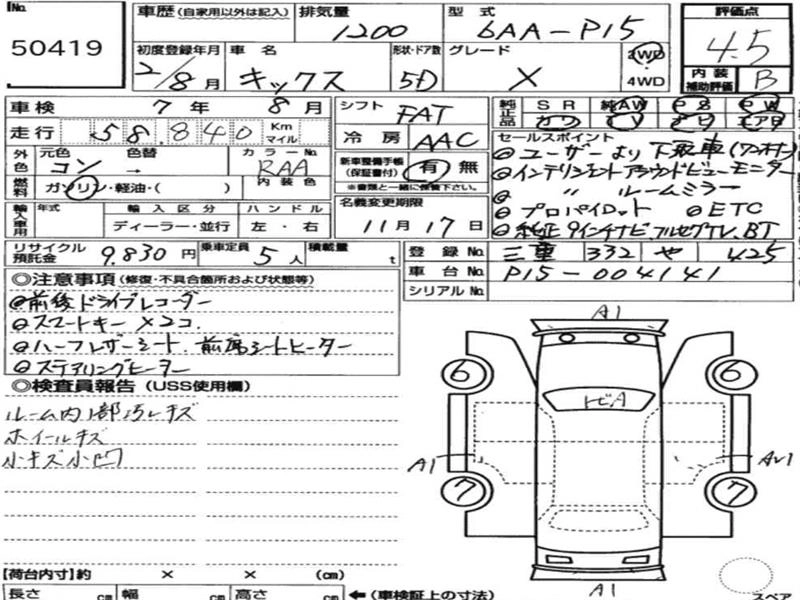 No. 50419
車歴(自家用以外は記入) 排気量 1200 型式 6AA-P15
初度登録年月 2/8月 車名 キックス 形状・ドア数 5D グレード X 2WD 4WD
評価点 4.5
内装補助評価 B
車検 7年 8月 シフト FAT
走行 58,840 Km マイル 冷房 AAC
純正品 SR 純AW PS PW
カワ TV ナビ エアB
外色 元色 コン 色替 → カラーNo. RAA
燃料 ガソリン・軽油・( ) 内装色
新車整備手帳(保証書付) 有 無
※書類と一緒に保管下さい。
輸入車用 年式 輸入区分 ディーラー・並行 ハンドル 左・右
名義変更期限 11月17日
セールスポイント
ユーザーより下取車(ワンオーナー)
インテリジェントアラウンドビューモニター
〃 ルームミラー
プロパイロット ETC
純正9インチナビ,フルセグTV,BT
リサイクル預託金 9,830円 乗車定員 5人 積載量 t
登録No. 三重 332 や 425
車台No. P15-004141
シリアルNo.
◎注意事項(修復・不具合箇所および状態等)
前後ドライブレコーダー
スマートキー×2コ.
ハーフレザーシート.前席シートヒーター
ステアリングヒーター
◎検査員報告(USS使用欄)
ルーム内1部汚レキズ
ホイールキズ
小キズ小凹
A1
6 6
トビA
A1
7 7
A1
【荷台内寸】約 × × (cm)
長さ cm 幅 cm 高さ cm ←(車検証上の寸法)
スペア